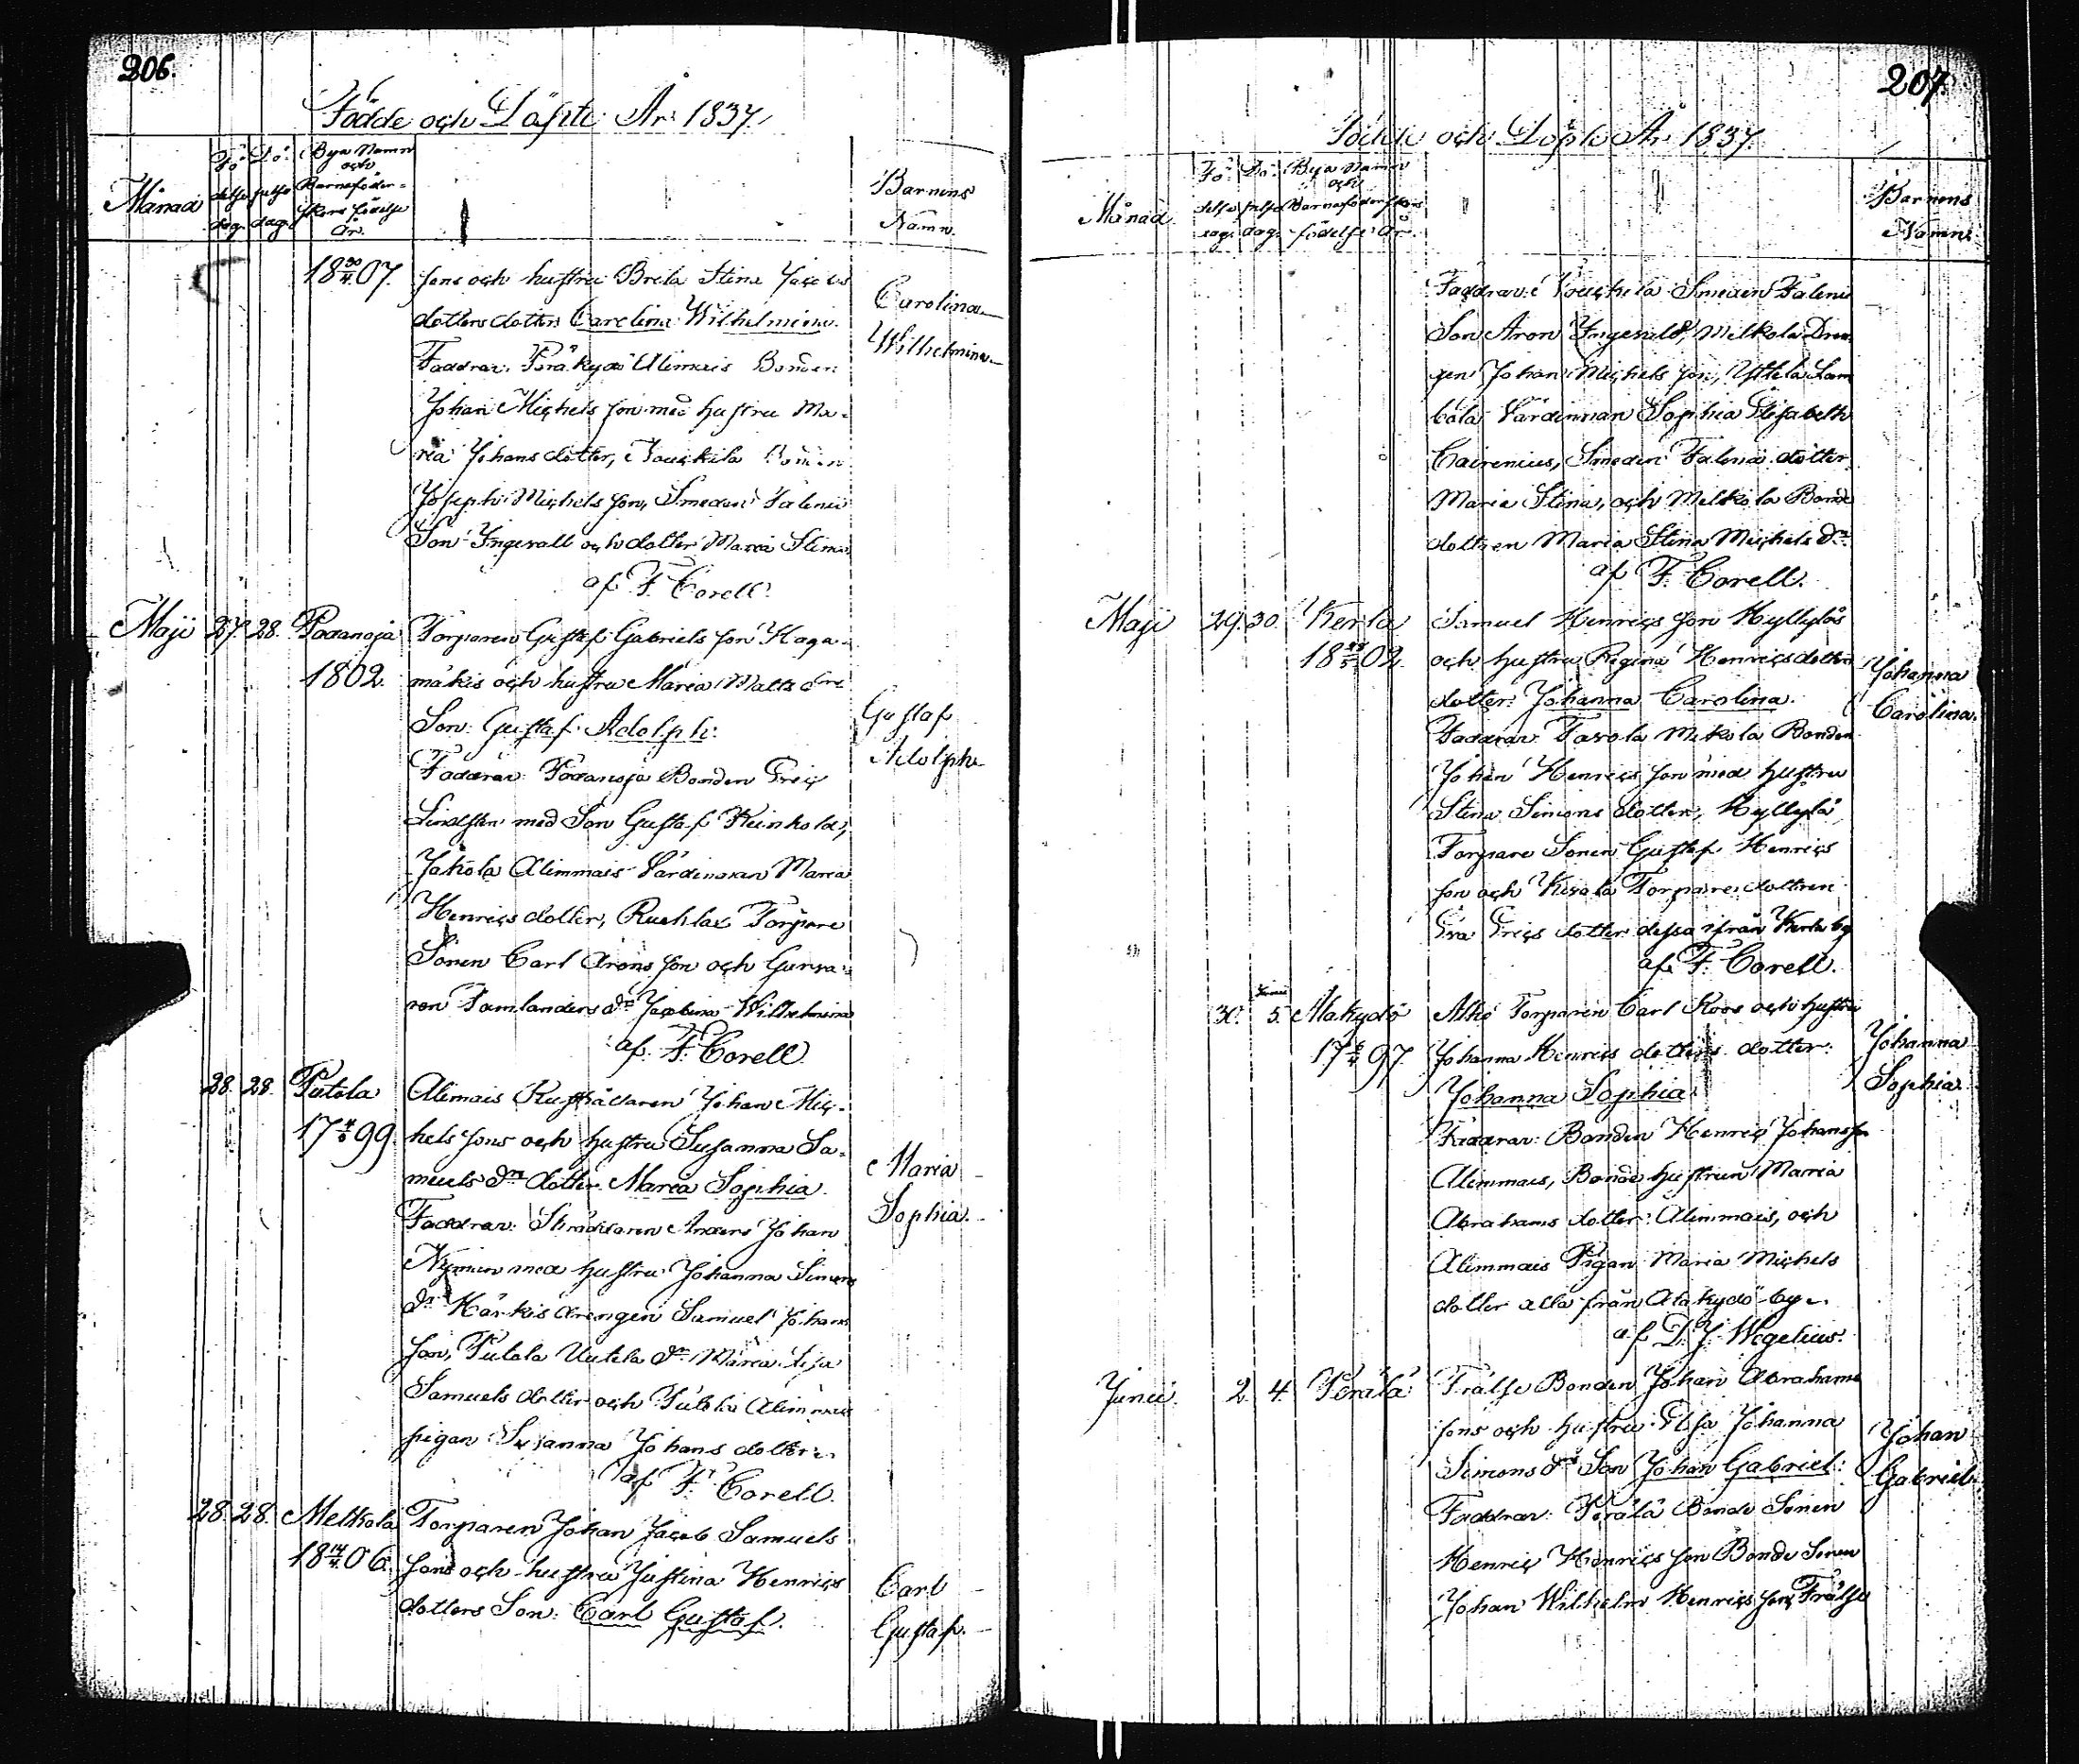 206.
Födde och Döpte År 1837.
Månad
Fö-
delse
dag.
Dö-
pelse
dag.
Bya Namn
och
Barnaföder-
skors födelse
År.
Barnens
Namn.
18 30/11 07. sons och hustru Brita Stina Jacobs
dotters dotter: Carolina Wilhelmina.
Carolina
Wilhelmina
Faddrar: Alimais Bonden
Johan Michels son med hustru Ma-
ria Johans dotter, Bonden
Joseph Michels son, Smeden Falenii
Son Ingevald och dotter Maria Stina
af F. Corell.
Maji 27. 28. Torparen Gustaf Gabriels son Haga-
1802. mäkis och hustru Maria Matts dr
Son: Gustaf Adolph.
Gustaf
Adolph
Faddrar: Bonden Eric
med Son Gustaf Reinhold,
Jakola Alimmais Värdinnan Maria
Henrics dotter, Torpare
Sonen Carl Arons son och Garva-
ren Tamlanders dr Jacobina Wilhelmina
af F. Corell.
28. 28. Putola Alimais Rusthållaren Johan Mic-
17 99. hels sons och hustru Susanna Sa-
muels drs dotter Maria Sophia.
Maria
Sophia.
Faddrar: Skräddaren Anders Johan
Nyman med hustru Johanna Simons
dr Härkis drengen Samuel Johans
son, Putola Uutela dr Maria Lisa
Samuels dotter och Putola Alimais
pigan Susanna Johans dotter.
af F. Corell.
28. 28. Melkola Torparen Johan Jacob Samuels
18 14/4 06. sons och hustru Justina Henrics
dotters Son: Carl Gustaf.
Carl
Gustaf.
207.
Födde och Döpte År 1837.
Månad.
Fö-
delse
dag.
Dö-
pelse
dag.
Bya Namn
och
Barnaföderskors
födelse År.
Barnens
Namn.
Faddrar: Smeden Falenii
Son Aron Ingevald, Melkola Dren-
gen Johan Michels son, Yttelä Lam
bola Värdinnan Sophia Elisabeth
Cairenius, Smeden Falenii dotter
Maria Stina, och Melkola Bonde
dottren Maria Stina Michels dr.
af F. Corell.
Maji 29. 30. Kerla Samuel Henrics son Hyllylös
18 02. och hustru Regina Henricsdotters
dotter: Johanna Carolina.
Johanna
Carolina.
Faddrar: Bonden
Johan Henrics son med hustru
Stina Simons dotter, Hyllylä
Torpare Sonen Gustaf Henrics
son och Torpare dottren
Eva Erics dotter dessa ifrån Kerla by
af F. Corell.
30. Junii 5. Alakydö Torparen Carl Roos och hustru
17 97. Johanna Henrics dotters dotter:
Johanna Sophia
Johanna
Sophia.
Faddrar: Bonden Henric Johansson
Alimmais, Bonde hustrun Maria
Abrahams dotter Alimmais, och
Alimmais Pigan Maria Michels
dotter alla från Alakydö by.
af D. J. Wegelius.
Junii. 2. 4. Perälä Frälse Bonden Johan Abrahams
sons och hustru Elsa Johanna
Simons drs Son Johan Gabriel:
Johan
Gabriel.
Faddrar: Perälä Bonde Sonen
Henric Henrics son Bonde Sonen
Johan Wilhelm Henrics son, Frälse